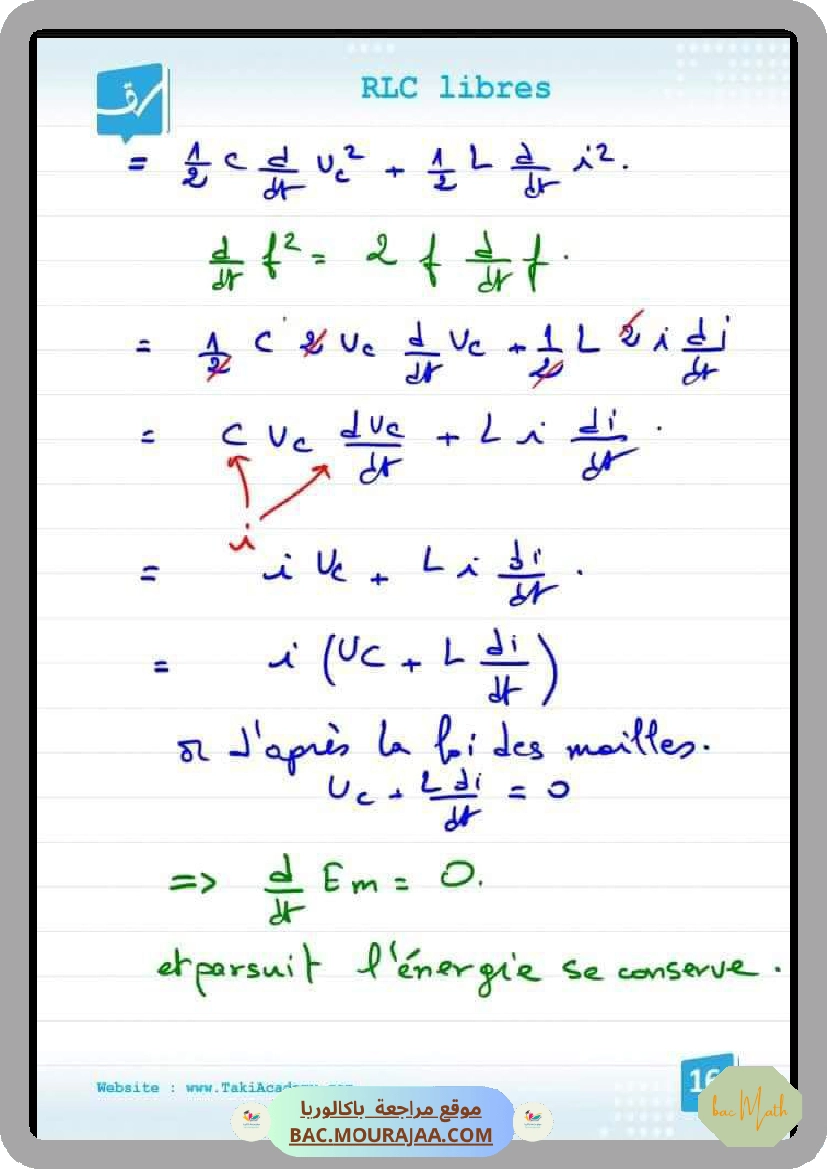 رق
RLC libres
= 1/2 C d/dt Uc² + 1/2 L d/dt i².
d/dt f² = 2 f d/dt f.
= 1/2 C 2 Uc d/dt Uc + 1/2 L 2 i di/dt
= C Uc dUc/dt + L i di/dt.
i
= i Uc + L i di/dt.
= i (UC + L di/dt)
or d'après la loi des mailles.
Uc + L di/dt = 0
=> d/dt Em = 0.
et parsuit l'énergie se conserve.
Website : www.TakiAcademy.com
16
موقع مراجعة باكالوريا
BAC.MOURAJAA.COM
bac Math